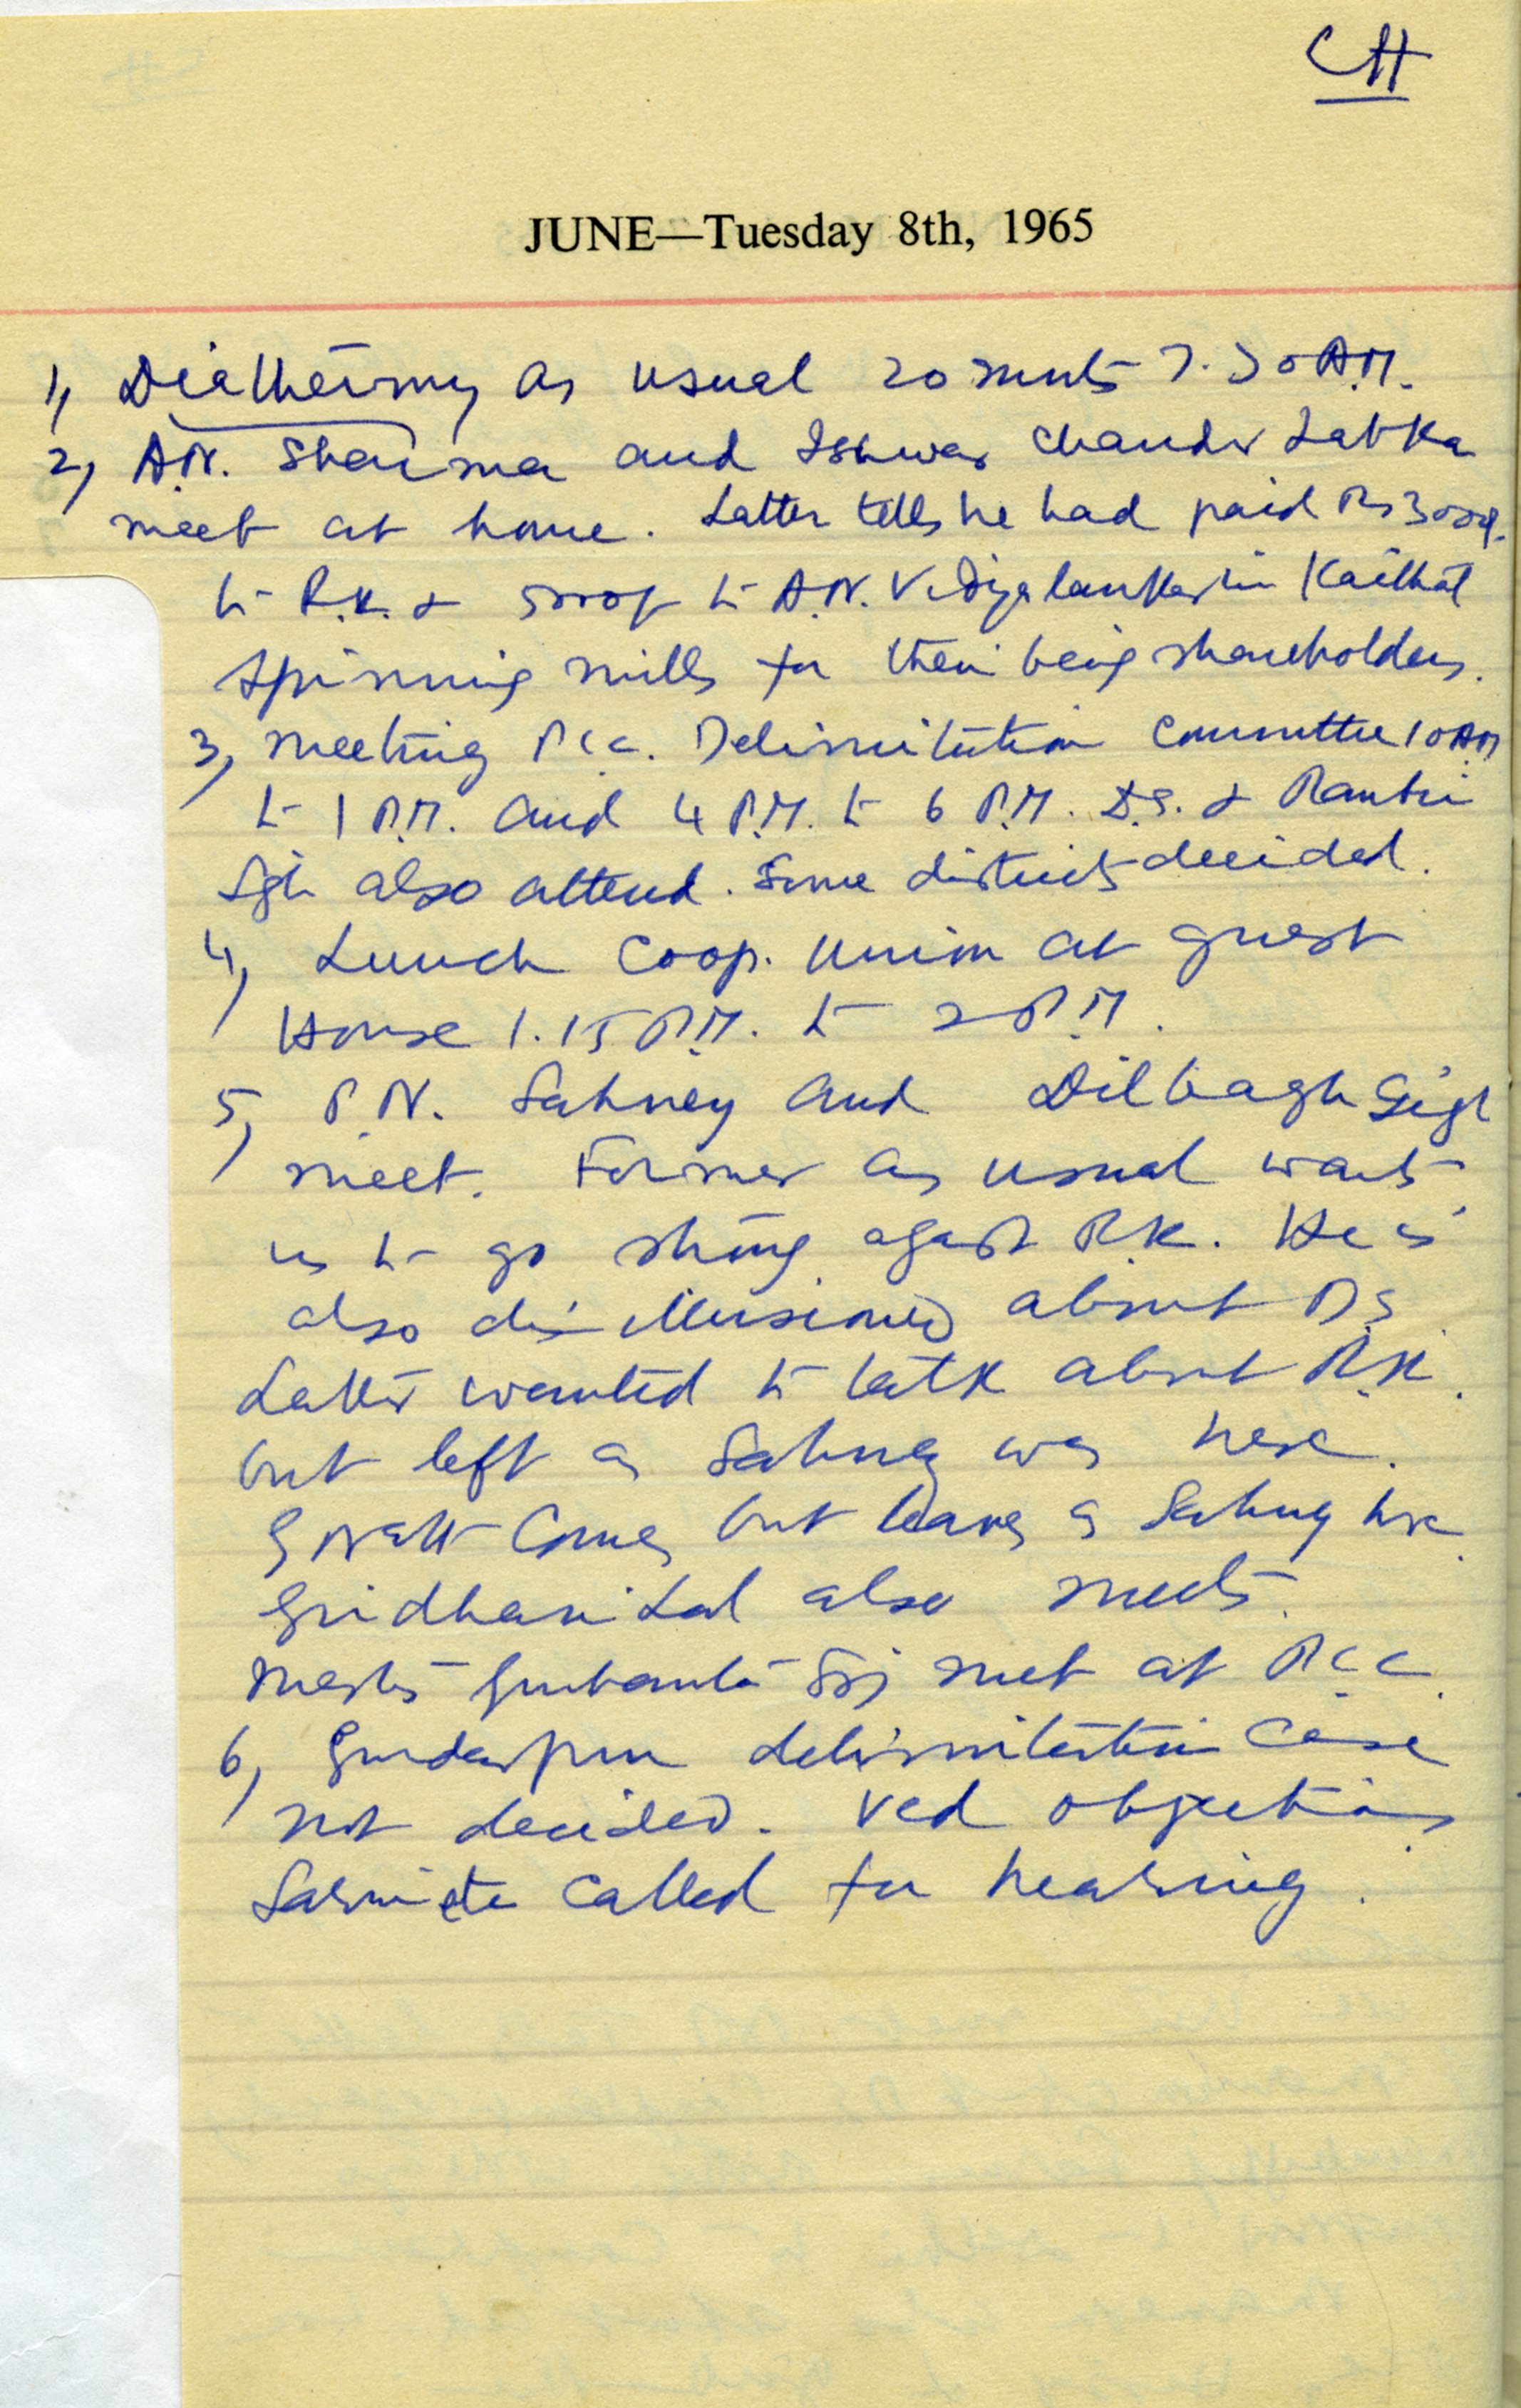 CH
JUNE—Tuesday 8th, 1965
1, Diathermy as usual 20 minuts 7.30 A.M.
2, A.N. Sharma and Ishwar Chandr
meet at home. Latter tells he had paid Rs
to R.K. & to A.N. Vidyalankar in Kaithal
Spinning mills for their being shareholders.
3, Meeting P.C.C. Delimitation Committee 10 AM
to 1 P.M. and 4 P.M. to 6 P.M. D.S. & Ranbir
Sgh also attend. Some districts decided.
4, Lunch Coop. Union at guest
House 1.15 P.M. to 2 P.M.
5, P.N. Sahney and Dilbagh Sigh
meet. Former as usual wants
us to go strong against R.K. He is
also disillusioned about D.S.
Latter wanted to talk about R.K.
but left as Sahney was here.
comes but leaves as Sahney here.
Girdhari Lal also meets.
Gurbanta met at P.C.C.
6, Gurdaspur delimitation case
not decided. Ved objections
called for hearing.